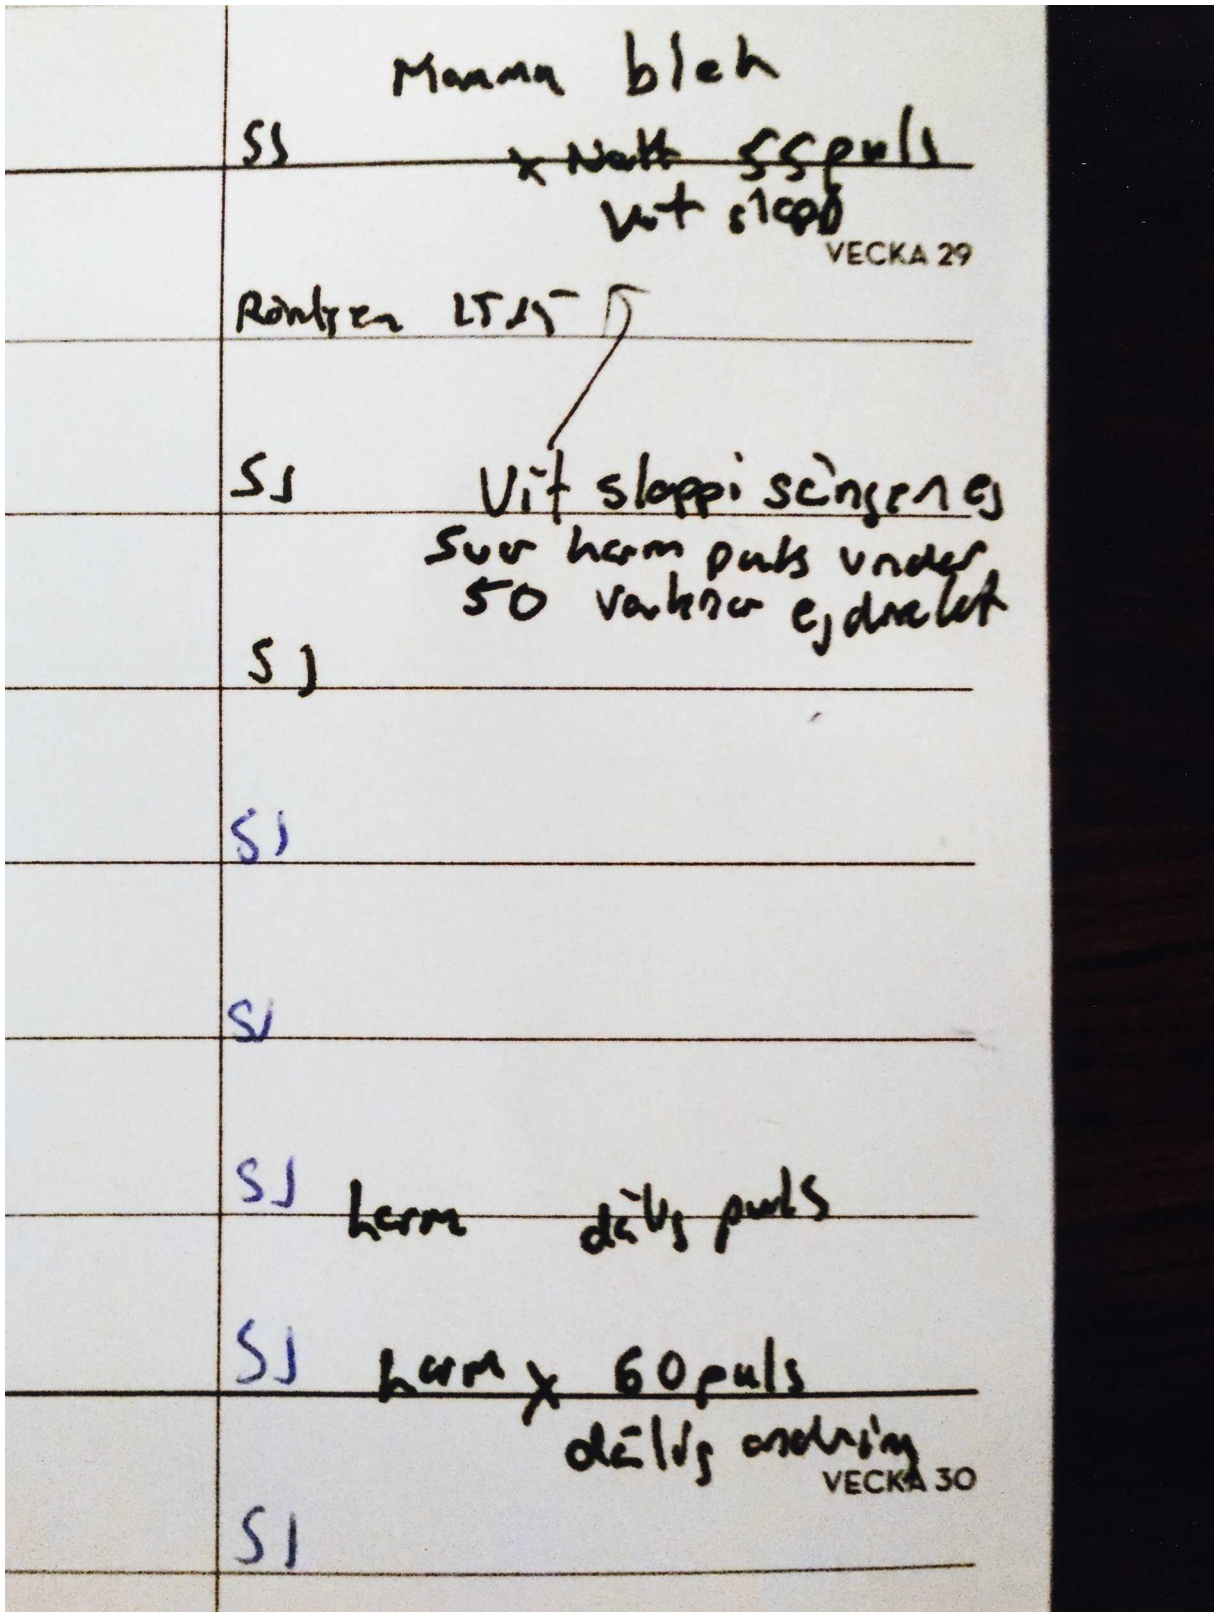 Mamma blek
SJ x Natt 55 puls
Vit slapp
VECKA 29
Röntgen
SJ Vit slapp i sängen ej
Svar harm puls under
50 vaknar ej direkt
SJ
SJ
SJ
SJ harm dålig puls
SJ harm x 60 puls
dålig andning
VECKA 30
SJ